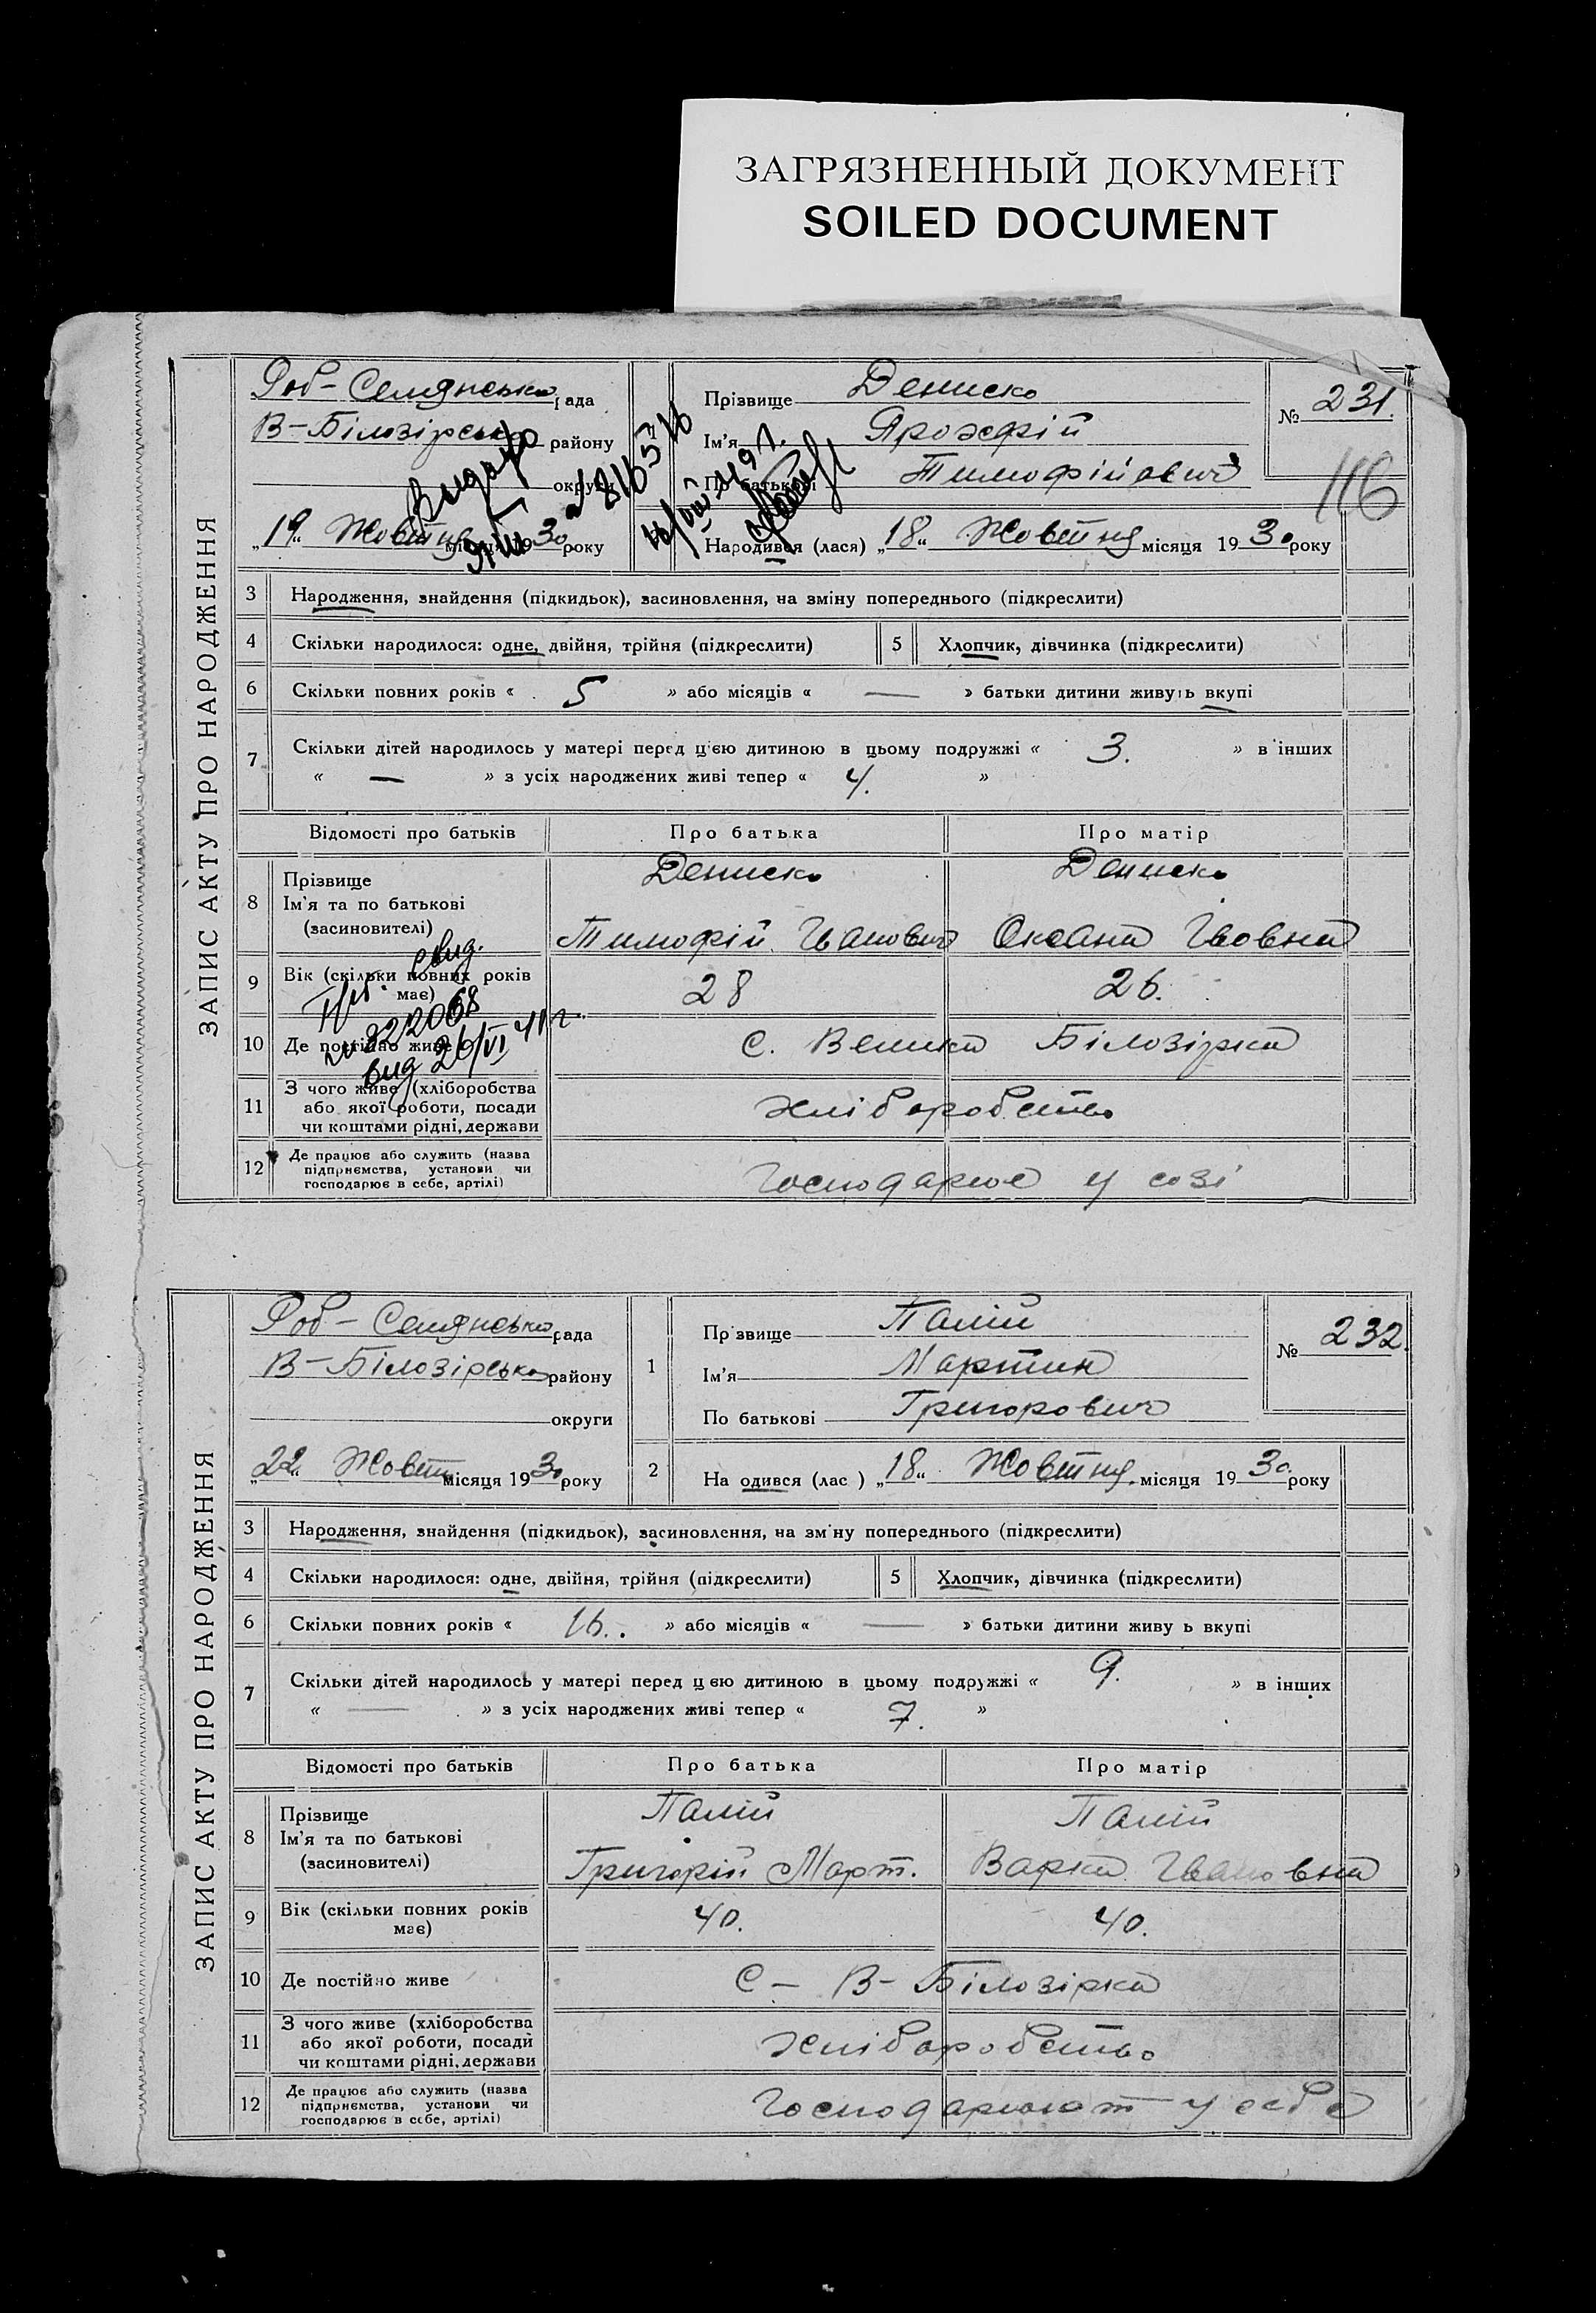 ЗАГРЯЗНЕННЫЙ ДОКУМЕНТ
SOILED DOCUMENT
ЗАПИС АКТУ ПРО НАРОДЖЕННЯ
Роб-Селянська рада
В-Білозірська району
округи
„19“ Жовтня місяця 1930 року
Прізвище Дениско
Ім'я
По батькові Тимофійович
№ 231.
116
Народився (лася) „18“ Жовтня місяця 1930 року
3 Народження, знайдення (підкидьок), засиновлення, на зміну попереднього (підкреслити)
4 Скільки народилося: одне, двійня, трійня (підкреслити) 5 Хлопчик, дівчинка (підкреслити)
6 Скільки повних років « 5 » або місяців « — » батьки дитини живуть вкупі
7 Скільки дітей народилось у матері перед цією дитиною в цьому подружжі « 3. » в інших
« — » з усіх народжених живі тепер « 4. »
Відомості про батьків Про батька Про матір
8 Прізвище Дениско Дениско
Ім'я та по батькові
(засиновителі) Тимофій Іванович Оксана Івовна
9 Вік (скільки повних років має) 28 26.
10 Де постійно живе С. Велика Білозірка
11 З чого живе (хліборобства
або якої роботи, посади
чи коштами рідні, держави хліборобство
12 Де працює або служить (назва
підприємства, установи чи
господарює в себе, артілі) Господарює у созі
№ 322068
вид 26/VI 41 г.
ЗАПИС АКТУ ПРО НАРОДЖЕННЯ
Роб-Селянська рада
В-Білозірська району
округи
„22“ Жовтн місяця 1930 року
1 Прізвище Палій
Ім'я Мартин
По батькові Григорович
№ 232.
2 На одився (лас ) „18“ Жовтня місяця 1930 року
3 Народження, знайдення (підкидьок), засиновлення, на зм ну попереднього (підкреслити)
4 Скільки народилося: одне, двійня, трійня (підкреслити) 5 Хлопчик, дівчинка (підкреслити)
6 Скільки повних років « 16. » або місяців « — » батьки дитини живу ь вкупі
7 Скільки дітей народилось у матері перед ц єю дитиною в цьому подружжі « 9. » в інших
« — » з усіх народжених живі тепер « 7. »
Відомості про батьків Про батька Про матір
8 Прізвище Палій Палій
Ім'я та по батькові
(засиновителі) Григорій Март. Варка Івановна
9 Вік (скільки повних років має) 40. 40.
10 Де постійно живе С – В – Білозірка
11 З чого живе (хліборобства
або якої роботи, посади
чи коштами рідні, держави хліборобство
12 Де працює або служить (назва
підприємства, установи чи
господарює в себе, артілі) Господарюют у себе